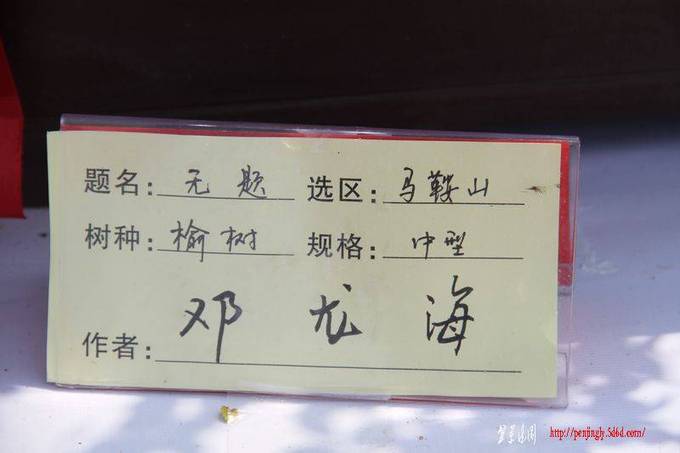 题名: 无题 选区: 马鞍山
树种: 榆树 规格: 中型
作者: 邓龙海
http://penjingly.5d6d.com/